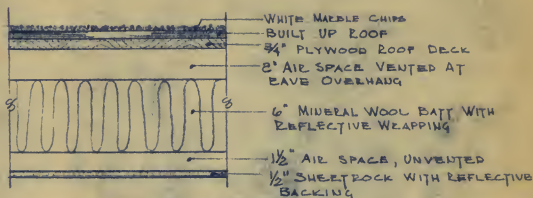 WHITE MARBLE CHIPS
BUILT UP ROOF
3/4" PLYWOOD ROOF DECK
8" AIR SPACE VENTED AT
EAVE OVERHANG
6" MINERAL WOOL BATT WITH
REFLECTIVE WRAPPING
1 1/2" AIR SPACE, UNVENTED
1/2" SHEETROCK WITH REFLECTIVE
BACKING